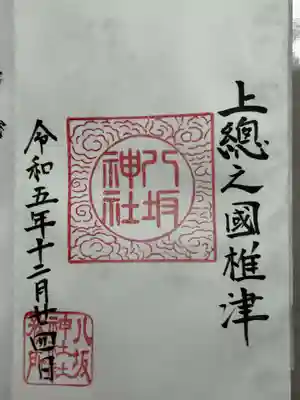 上總之國椎津
八坂神社
令和五年十二月廿四日
八坂神社